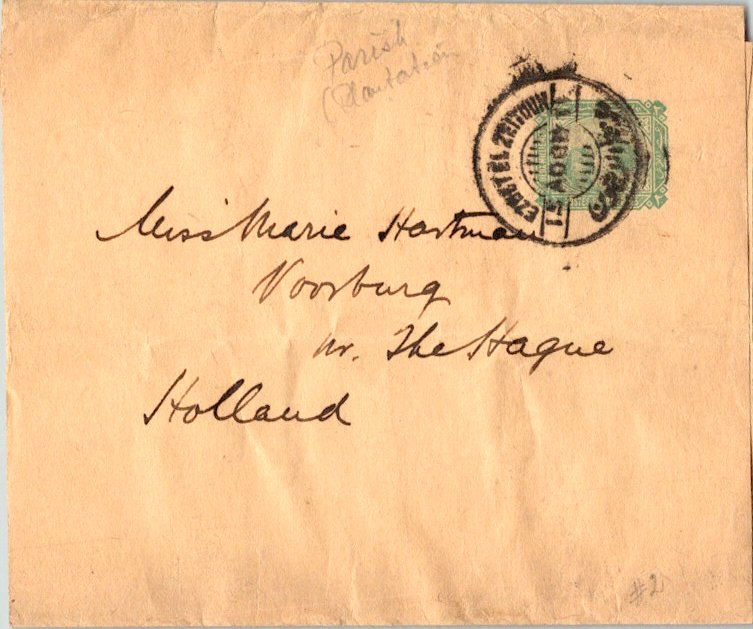 Parish
(Plantation
EZBET EL ZEITOUN
Miss Marie Hartman
Voorburg
nr. The Hague
Holland
#2